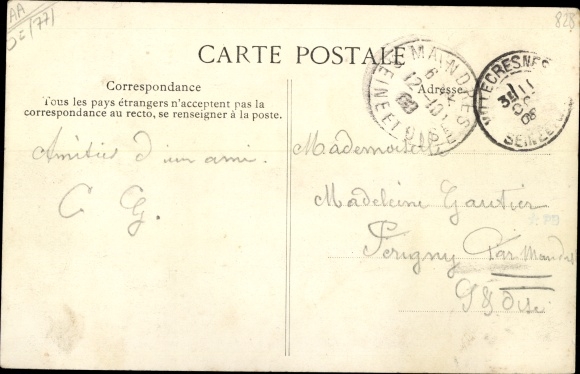 AA
828
CARTE POSTALE
Correspondance
Tous les pays étrangers n'acceptent pas la
correspondance au recto, se renseigner à la poste.
Adresse
MANDRES
SEINE ET OISE
6
12-10
VILLECRESNES
11
SEINE ET
Amitiés d'un ami.
C G.
Mademoiselle
Madeleine Gautier
Périgny Par Mandres
S & Oise